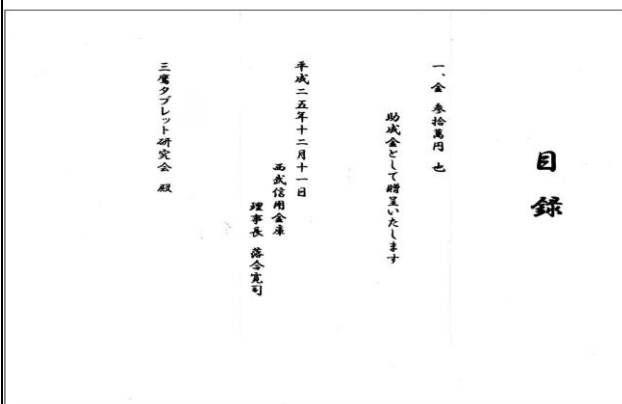 目録
一、金 参拾萬円 也
助成金として贈呈いたします
平成二五年十二月十一日
西武信用金庫
理事長 落合寛司
三鷹タブレット研究会 殿